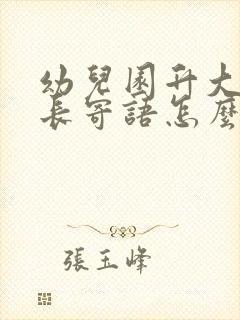 幼兒園升大
長寄語怎麼
張玉峰